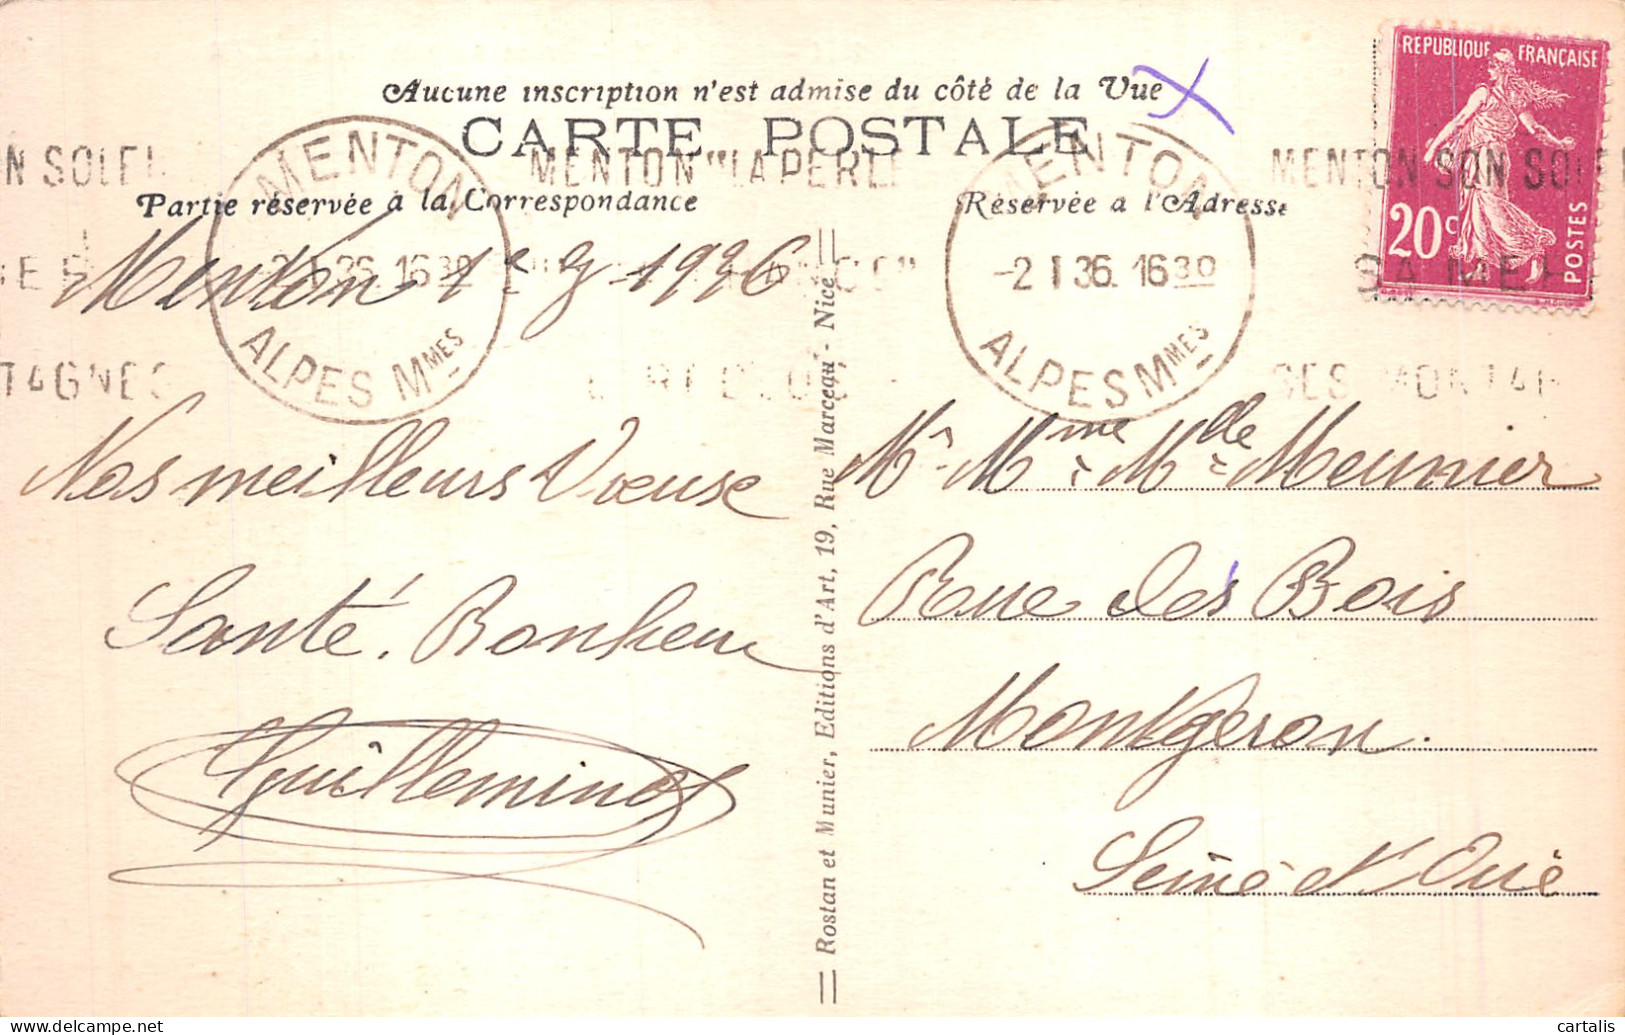 REPUBLIQUE FRANÇAISE
20c
POSTES
Aucune inscription n'est admise du côté de la Vue
CARTE POSTALE
N SOLEI
MENTON "LA PERLE
MENTON SON SOLE
SA MER
TAGNES
SES MONTA
MENTON
16 30
ALPES Mmes
MENTON
-2 1 36. 16 30
ALPES Mmes
Partie réservée à la Correspondance
Menton 1e 1936
Nos meilleurs Vœuse
Santé. Bonheur
Guillemino
Rostan et Munier, Editions d'Art, 19, Rue Marceau - Nice
Réservée à l'Adresse
Mr Mme Mlle Meunier
Rue des Bois
Montgeron.
Seine et Oise
cartalis
www.delcampe.net